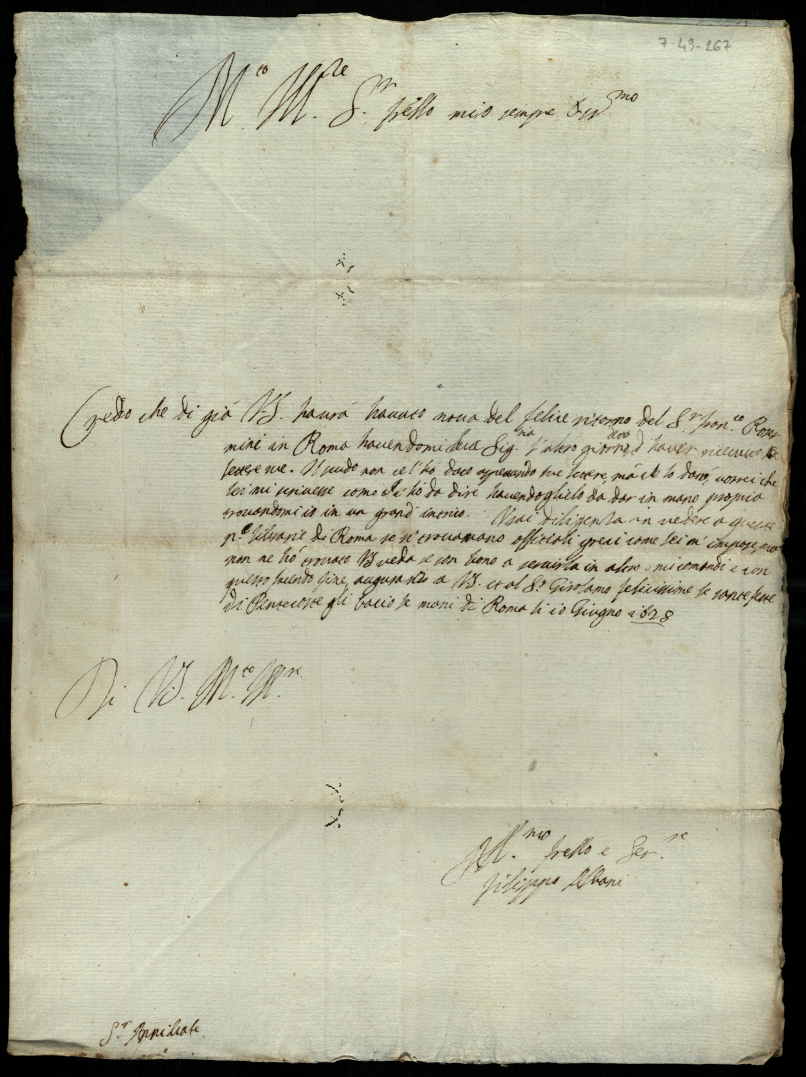 7-49-267
M.co M.re S.r frello mio sempre oss.mo
Credo che di già V.S. haurà hauuto noua del felice ritorno del S.r Fran.co
mini in Roma hauendomi sua Sig.ria l'altro giorno d'hauer riceuuto
lettere sue. Il scudo non ce l'hò dato aspettando sue lettere, mà se lo darò, vorrei che
lei mi scriuesse come li hò da dire hauendoglielo da dar in mano propria
trouandomi io in un grand' Usai diligenza in vedere a queste
p.e librarie di Roma se si trouauano offitioli greci come lei m'impose,
non ne hò trouato V.S. veda se son bono a seruirla in altro e mi comandi e con
questo facendo fine, augurando a V.S. et al S.r Girolamo felicissime le sante feste
di Pentecoste gli bacio le mani di Roma li 10 Giugno 1628
Di V.S. M.to M.re
Aff.mo frello e Ser.re
Filippo Albani
S.r